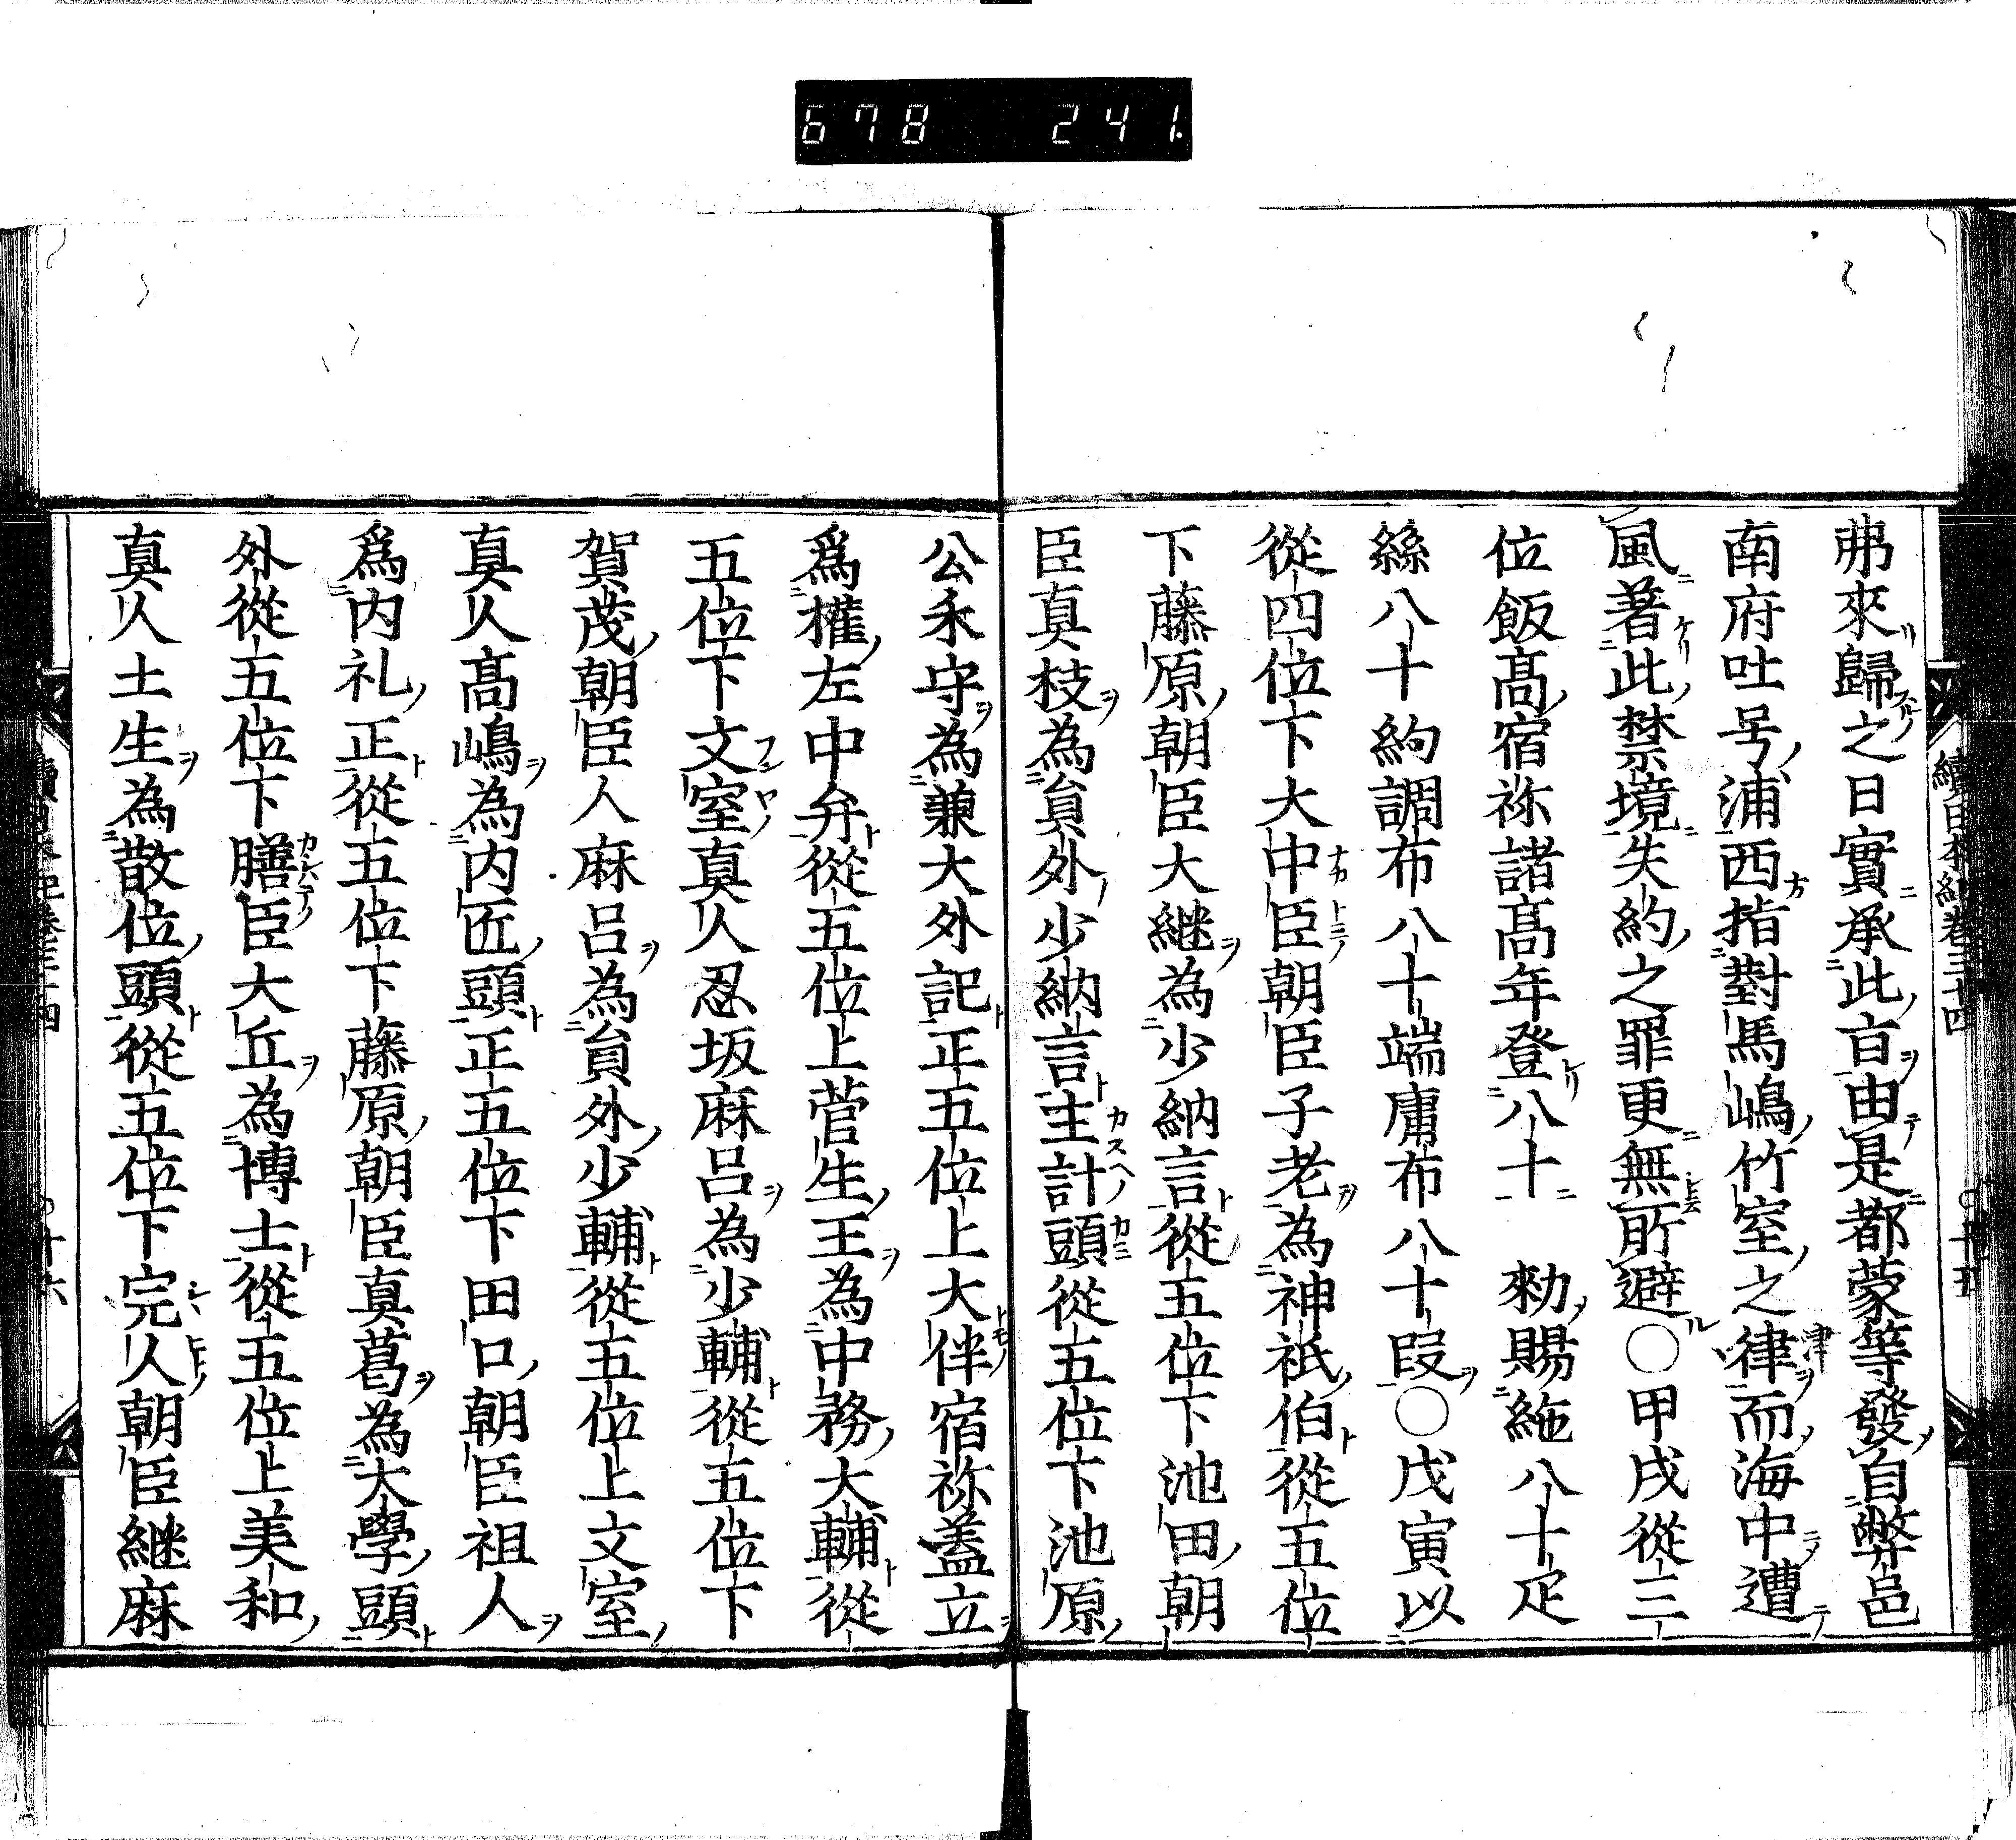 678 241.
弗來歸之日實承此㫖由是都蒙等發自弊邑
南府吐号浦西指對馬嶋竹室之律而海中遭
風著此禁境失約之罪更無所避〇甲戌從三
位飯髙宿祢諸髙年登八十 勑賜絁八十疋
絲八十絇調布八十端庸布八十段〇戊寅以
從四位下大中臣朝臣子老為神祇伯從五位
下藤原朝臣大継為少納言從五位下池田朝
臣真枝為貟外少納言主計頭從五位下池原
公禾守為兼大外記正五位上大伴宿祢益立
爲權左中弁從五位上菅生王為中務大輔從
五位下文室真人忍坂麻呂為少輔從五位下
賀茂朝臣人麻呂為貟外少輔從五位上文室
真人髙嶋為内匠頭正五位下田口朝臣祖人
爲内礼正從五位下藤原朝臣真葛為大學頭
外從五位下膳臣大丘為博士從五位上美和
真人土生為散位頭從五位下完人朝臣継麻
續日本紀卷三十四